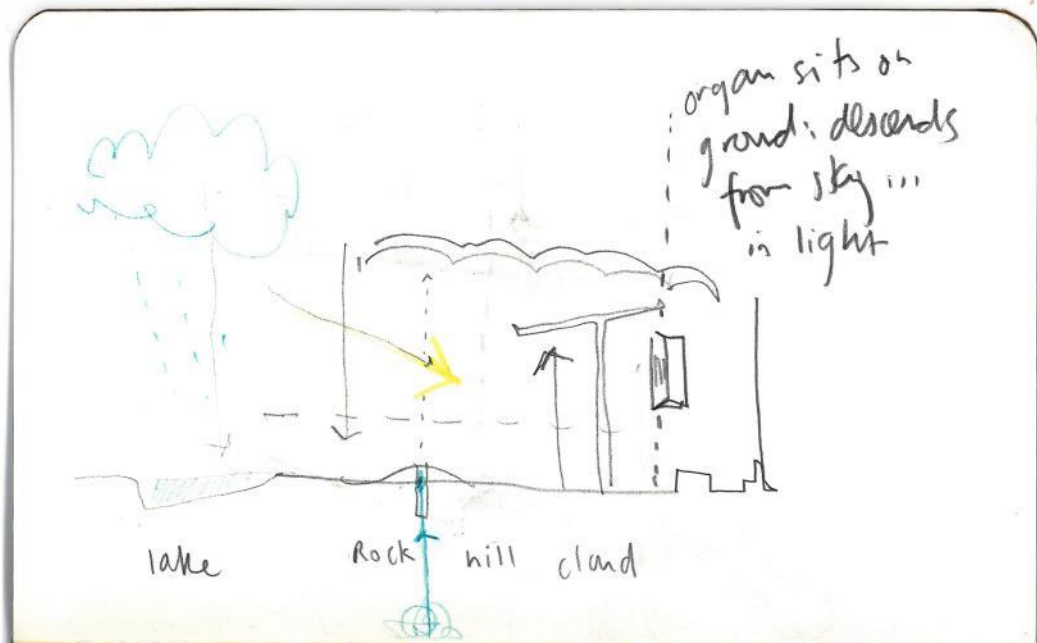 organ sits on
ground: descends
from sky ...
in light
lake Rock hill cloud